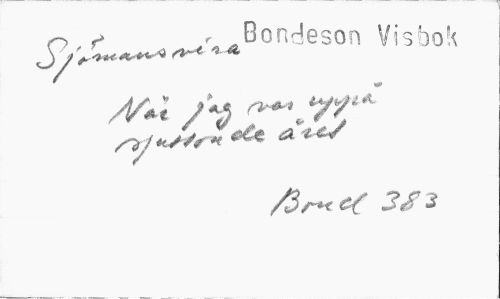 Sjömansvisa Bondeson Visbok
När jag var uppå
sjuttonde året
Bond 383